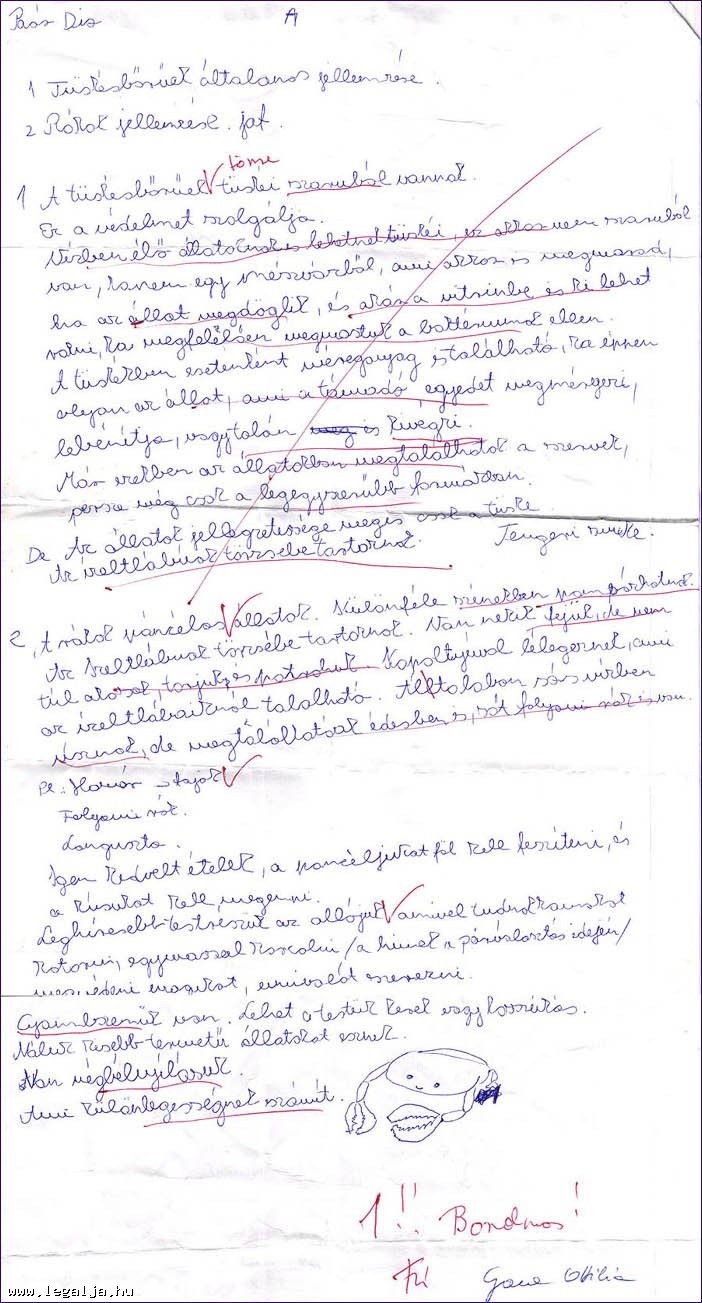 Paár Dia A
1 Tüskésbőrűek általános jellemzése.
2 Rákok jellemzése. faf.
töme
1 A tüskésbőrűek tüskéi szaruból vannak.
Ez a védelmet szolgálja.
Vízben élő állatoknak is lehetnek tüskéi, ez akkor nem szaruból
van, hanem egy mészvázból, ami akkor is megmarad,
ha az állat megdöglik, és akár a vitrinbe is ki lehet
rakni, ha megfelelően megmostuk a baktériumok ellen.
A tüskékben esetenként méreganyag is található, ha éppen
olyan az állat, ami a támadó egyedet megmérgezi,
lebénítja, vagy talán is kivégzi.
Már ezekben az állatokban megtalálhatók a szervek,
persze még csak a legegyszerűbb formákban.
De Az állatok jellegzetessége mégis csak a tüske.
Az ízeltlábúak törzsébe tartoznak. Tengeri
2, A rákok páncélos állatok. Különféle színekben pompázhatnak.
Az ízeltlábúak törzsébe tartoznak. Van nekik fejük, de nem
túl okosak, torjuk és potrohuk. Kopoltyúval lélegeznek, ami
az ízeltlábaiknál található. Álltalában sós vízben
úsznak, de megtalálhatóak édesben is, sőt folyami rák is van.
Pl.: Homár
Folyami rák.
Languszta.
Igen kedvelt ételek, a páncéljukat föl kell feszíteni, és
a húsukat kell megenni.
Leghíresebb testrészük az ollójuk amivel tudnak
kotorni, egymással harcolni /a hímek a párválasztás idején/
megvédeni magukat, ennivalót szerezni.
Gyomb szemük van. Lehet a testük kerek vagy hosszúkás.
Náluk kisebb termetű állatokat esznek.
Van végbélnyílásuk.
Ami különlegességnek számít.
1!! Borzalmas!
Gane Ottilia
www.legalja.hu